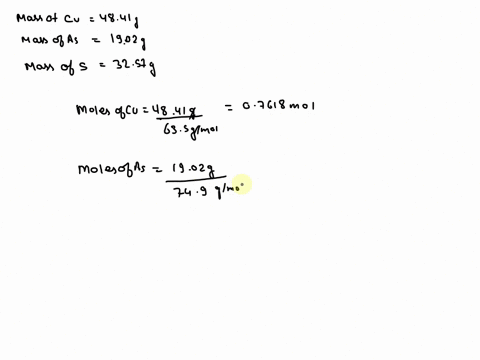 Mass of Cu = 48.41g
Mass of As = 19.02g
Mass of S = 32.57g
Moles of Cu = 48.41g = 0.7618 mol
63.5g/mol
Moles of As = 19.02g
74.9 g/mo